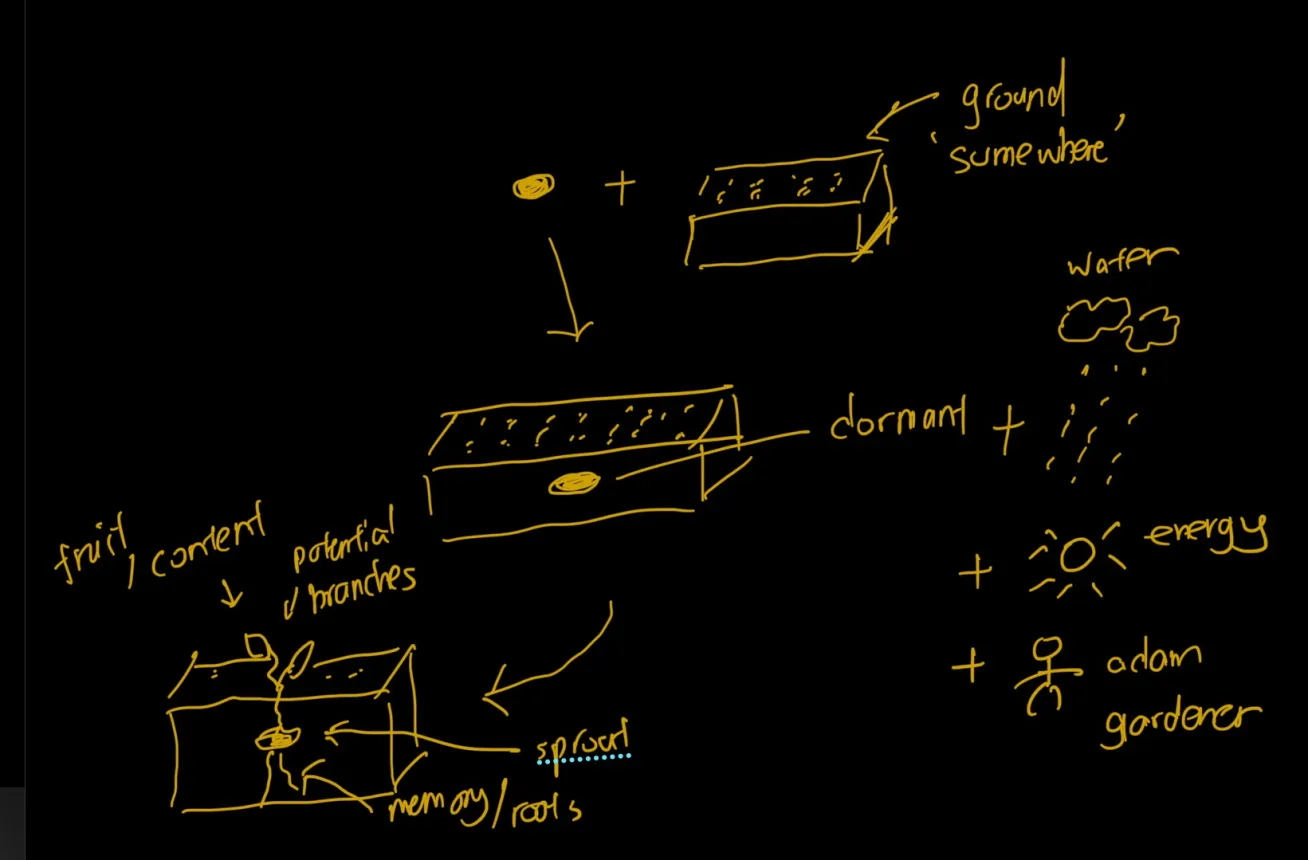 ground
'somewhere'
water
dormant +
+ energy
+ adam
gardener
fruit, content
potential
branches
sprout
memory/roots
+